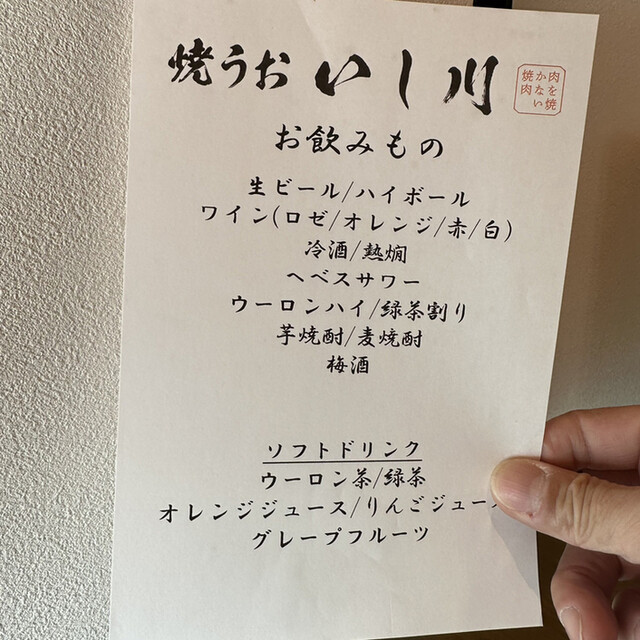 焼うおいし川
肉を焼
かない
焼肉
お飲みもの
生ビール/ハイボール
ワイン(ロゼ/オレンジ/赤/白)
冷酒/熱燗
ヘベスサワー
ウーロンハイ/緑茶割り
芋焼酎/麦焼酎
梅酒
ソフトドリンク
ウーロン茶/緑茶
オレンジジュース/りんごジュース
グレープフルーツ